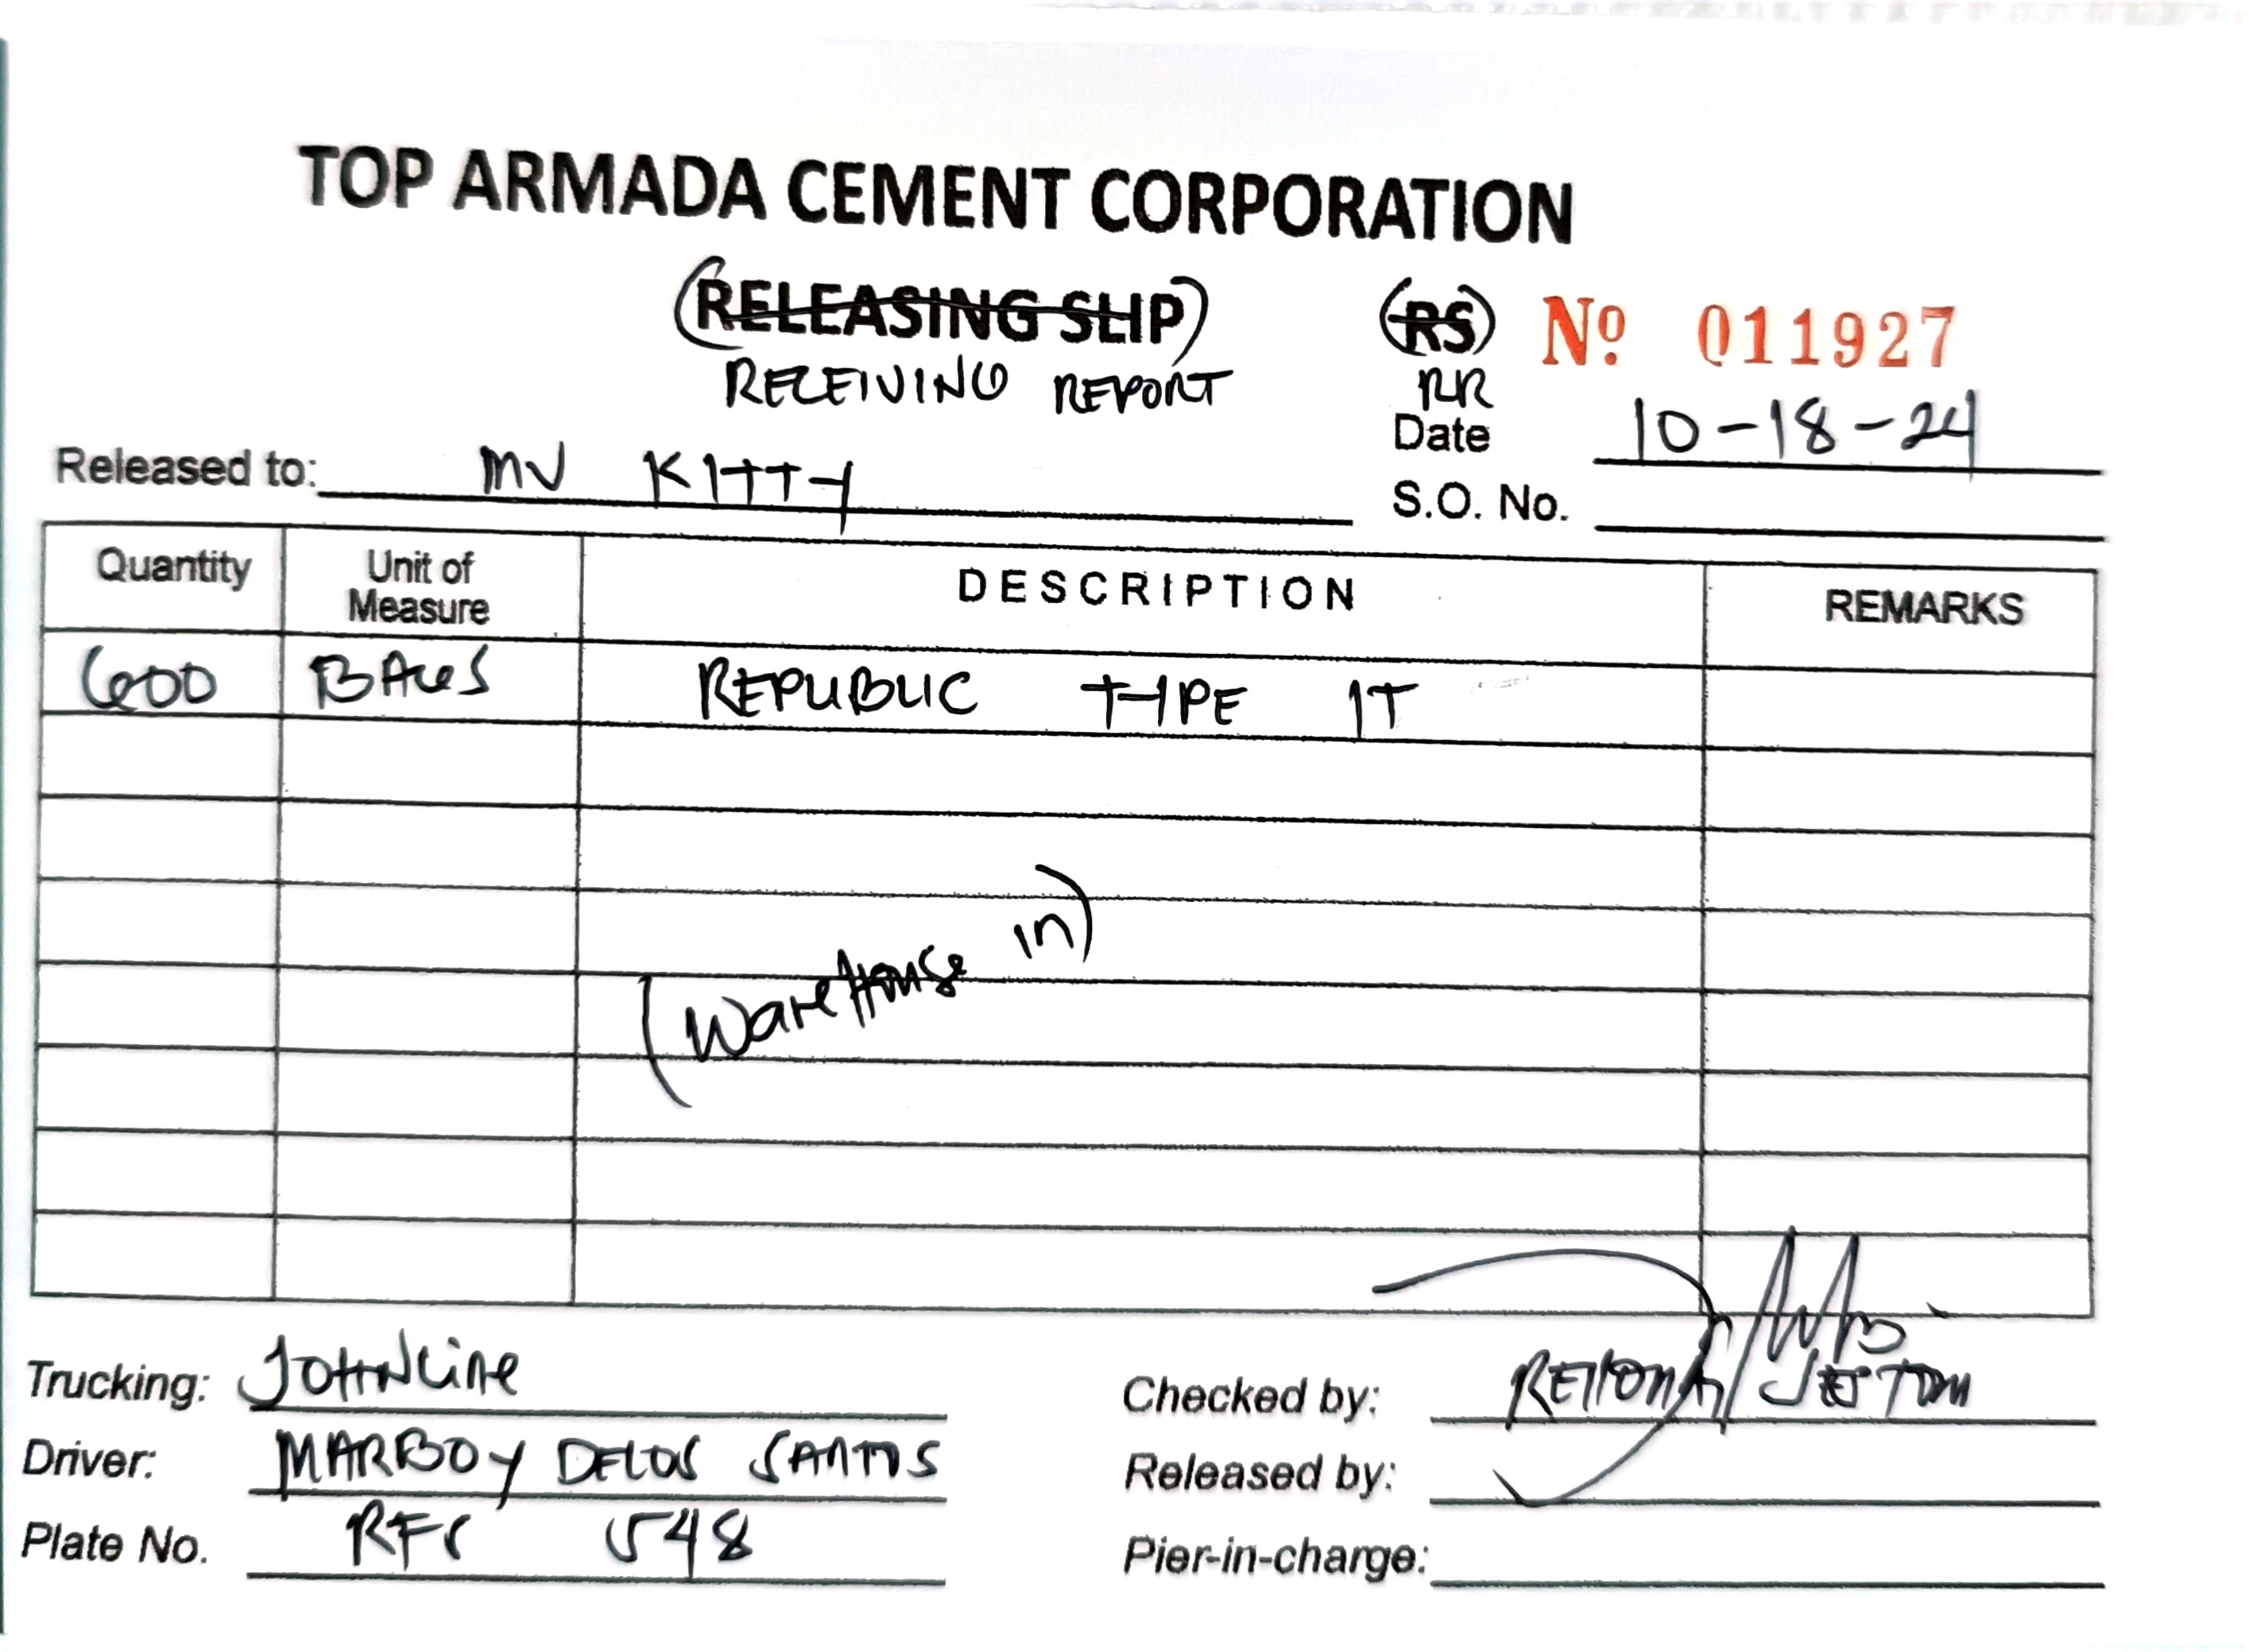 TOP ARMADA CEMENT CORPORATION
(RELEASING SLIP) (RS) Nº 011927
RECEIVING REPORT RR
Date 10-18-24
Released to: MV KITTY
S.O. No.
Quantity Unit of Measure DESCRIPTION REMARKS
600 BAGS REPUBLIC TYPE 1T
(WareHouse in)
Trucking: JOHNLine
Checked by:
Driver: MARBOY DELOS SANTOS
Released by:
Plate No. 548
Pier-in-charge: